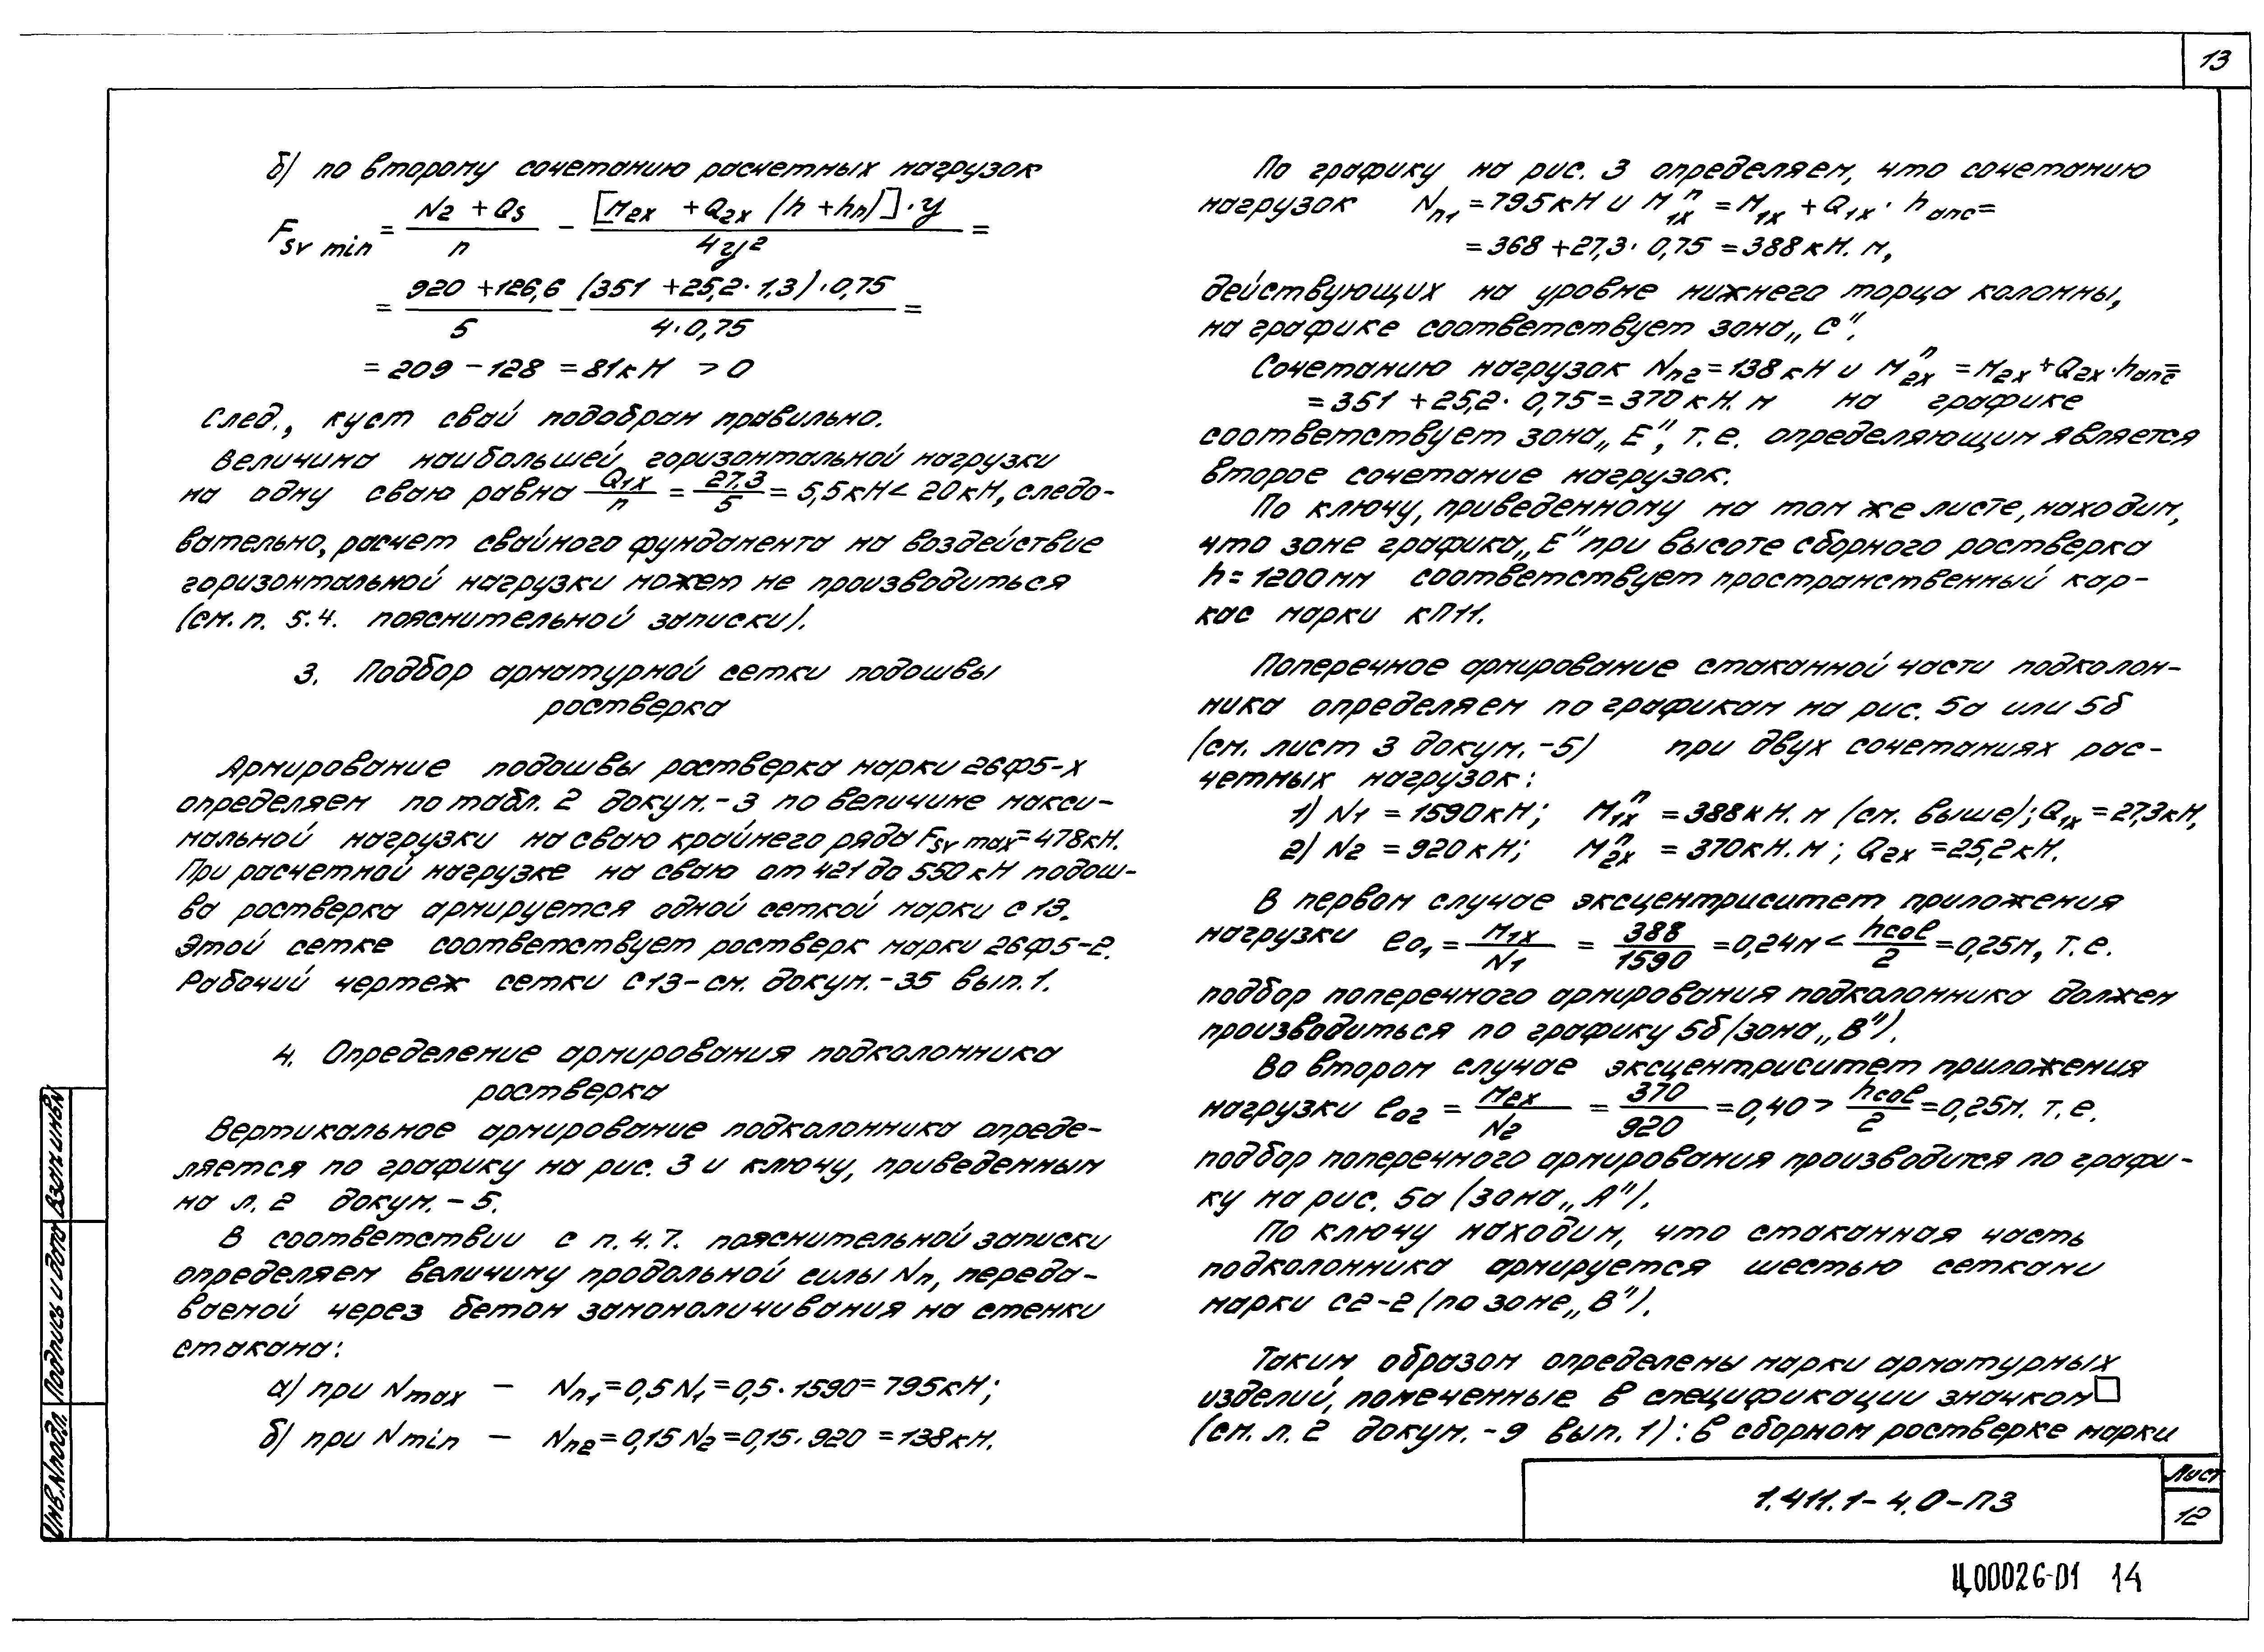 13
б) по второму сочетанию расчетных нагрузок
F sv min = (N2 + Qs)/n − ([M2x + Q2x (h + hп)]·y)/(4y²) =
= (920 + 126,6)/5 − ((351 + 25,2·1,3)·0,75)/(4·0,75) =
= 209 − 128 = 81 кН > 0
След., куст свай подобран правильно.
Величина наибольшей горизонтальной нагрузки
на одну сваю равна Q1x/n = 27,3/5 = 5,5 кН < 20 кН, следо-
вательно, расчет свайного фундамента на воздействие
горизонтальной нагрузки может не производиться
(см. п. 5.4. пояснительной записки).
3. Подбор арматурной сетки подошвы
ростверка
Армирование подошвы ростверка марки 26Ф5-Х
определяем по табл. 2 докум.-3 по величине макси-
мальной нагрузки на сваю крайнего ряда Fsv max = 478 кН.
При расчетной нагрузке на сваю от 421 до 550 кН подош-
ва ростверка армируется одной сеткой марки С13.
Этой сетке соответствует ростверк марки 26Ф5-2.
Рабочий чертеж сетки С13 - см. докум. -35 вып. 1.
4. Определение армирования подколонника
ростверка
Вертикальное армирование подколонника опреде-
ляется по графику на рис. 3 и ключу, приведенным
на л. 2 докум. - 5.
В соответствии с п. 4.7. пояснительной записки
определяем величину продольной силы Nп, переда-
ваемой через бетон замоноличивания на стенки
стакана:
а) при Nmax — Nп1 = 0,5 N1 = 0,5·1590 = 795 кН;
б) при Nmin — Nп2 = 0,15 N2 = 0,15·920 = 138 кН.
По графику на рис. 3 определяем, что сочетанию
нагрузок Nп1 = 795 кН и Mп1x = M1x + Q1x · hапс =
= 368 + 27,3 · 0,75 = 388 кН. м,
действующих на уровне нижнего торца колонны,
на графике соответствует зона „С".
Сочетанию нагрузок Nп2 = 138 кН и Mп2x = M2x + Q2x · hапс =
= 351 + 25,2 · 0,75 = 370 кН. м на графике
соответствует зона „Е", т.е. определяющим является
второе сочетание нагрузок.
По ключу, приведенному на том же листе, находим,
что зоне графика „Е" при высоте сборного ростверка
h = 1200 мм соответствует пространственный кар-
кас марки КП11.
Поперечное армирование стаканной части подколон-
ника определяем по графикам на рис. 5а или 5б
(см. лист 3 докум. -5) при двух сочетаниях рас-
четных нагрузок:
1) N1 = 1590 кН; Mп1x = 388 кН. м (см. выше); Q1x = 27,3 кН,
2) N2 = 920 кН; Mп2x = 370 кН. м; Q2x = 25,2 кН.
В первом случае эксцентриситет приложения
нагрузки e01 = M1x/N1 = 388/1590 = 0,24 м < hcol/2 = 0,25 м, т.е.
подбор поперечного армирования подколонника должен
производиться по графику 5б (зона „В").
Во втором случае эксцентриситет приложения
нагрузки e02 = M2x/N2 = 370/920 = 0,40 > hcol/2 = 0,25 м. т.е.
подбор поперечного армирования производится по графи-
ку на рис. 5а (зона „А").
По ключу находим, что стаканная часть
подколонника армируется шестью сетками
марки С2-2 (по зоне „В").
Таким образом определены марки арматурных
изделий, помеченные в спецификации значком □
(см. л. 2 докум. -9 вып. 1): в сборном ростверке марки
Инв.N подл. Подпись и дата Взам инвN
1.411.1-4.0-ПЗ
Лист
12
Ц00026-01 14